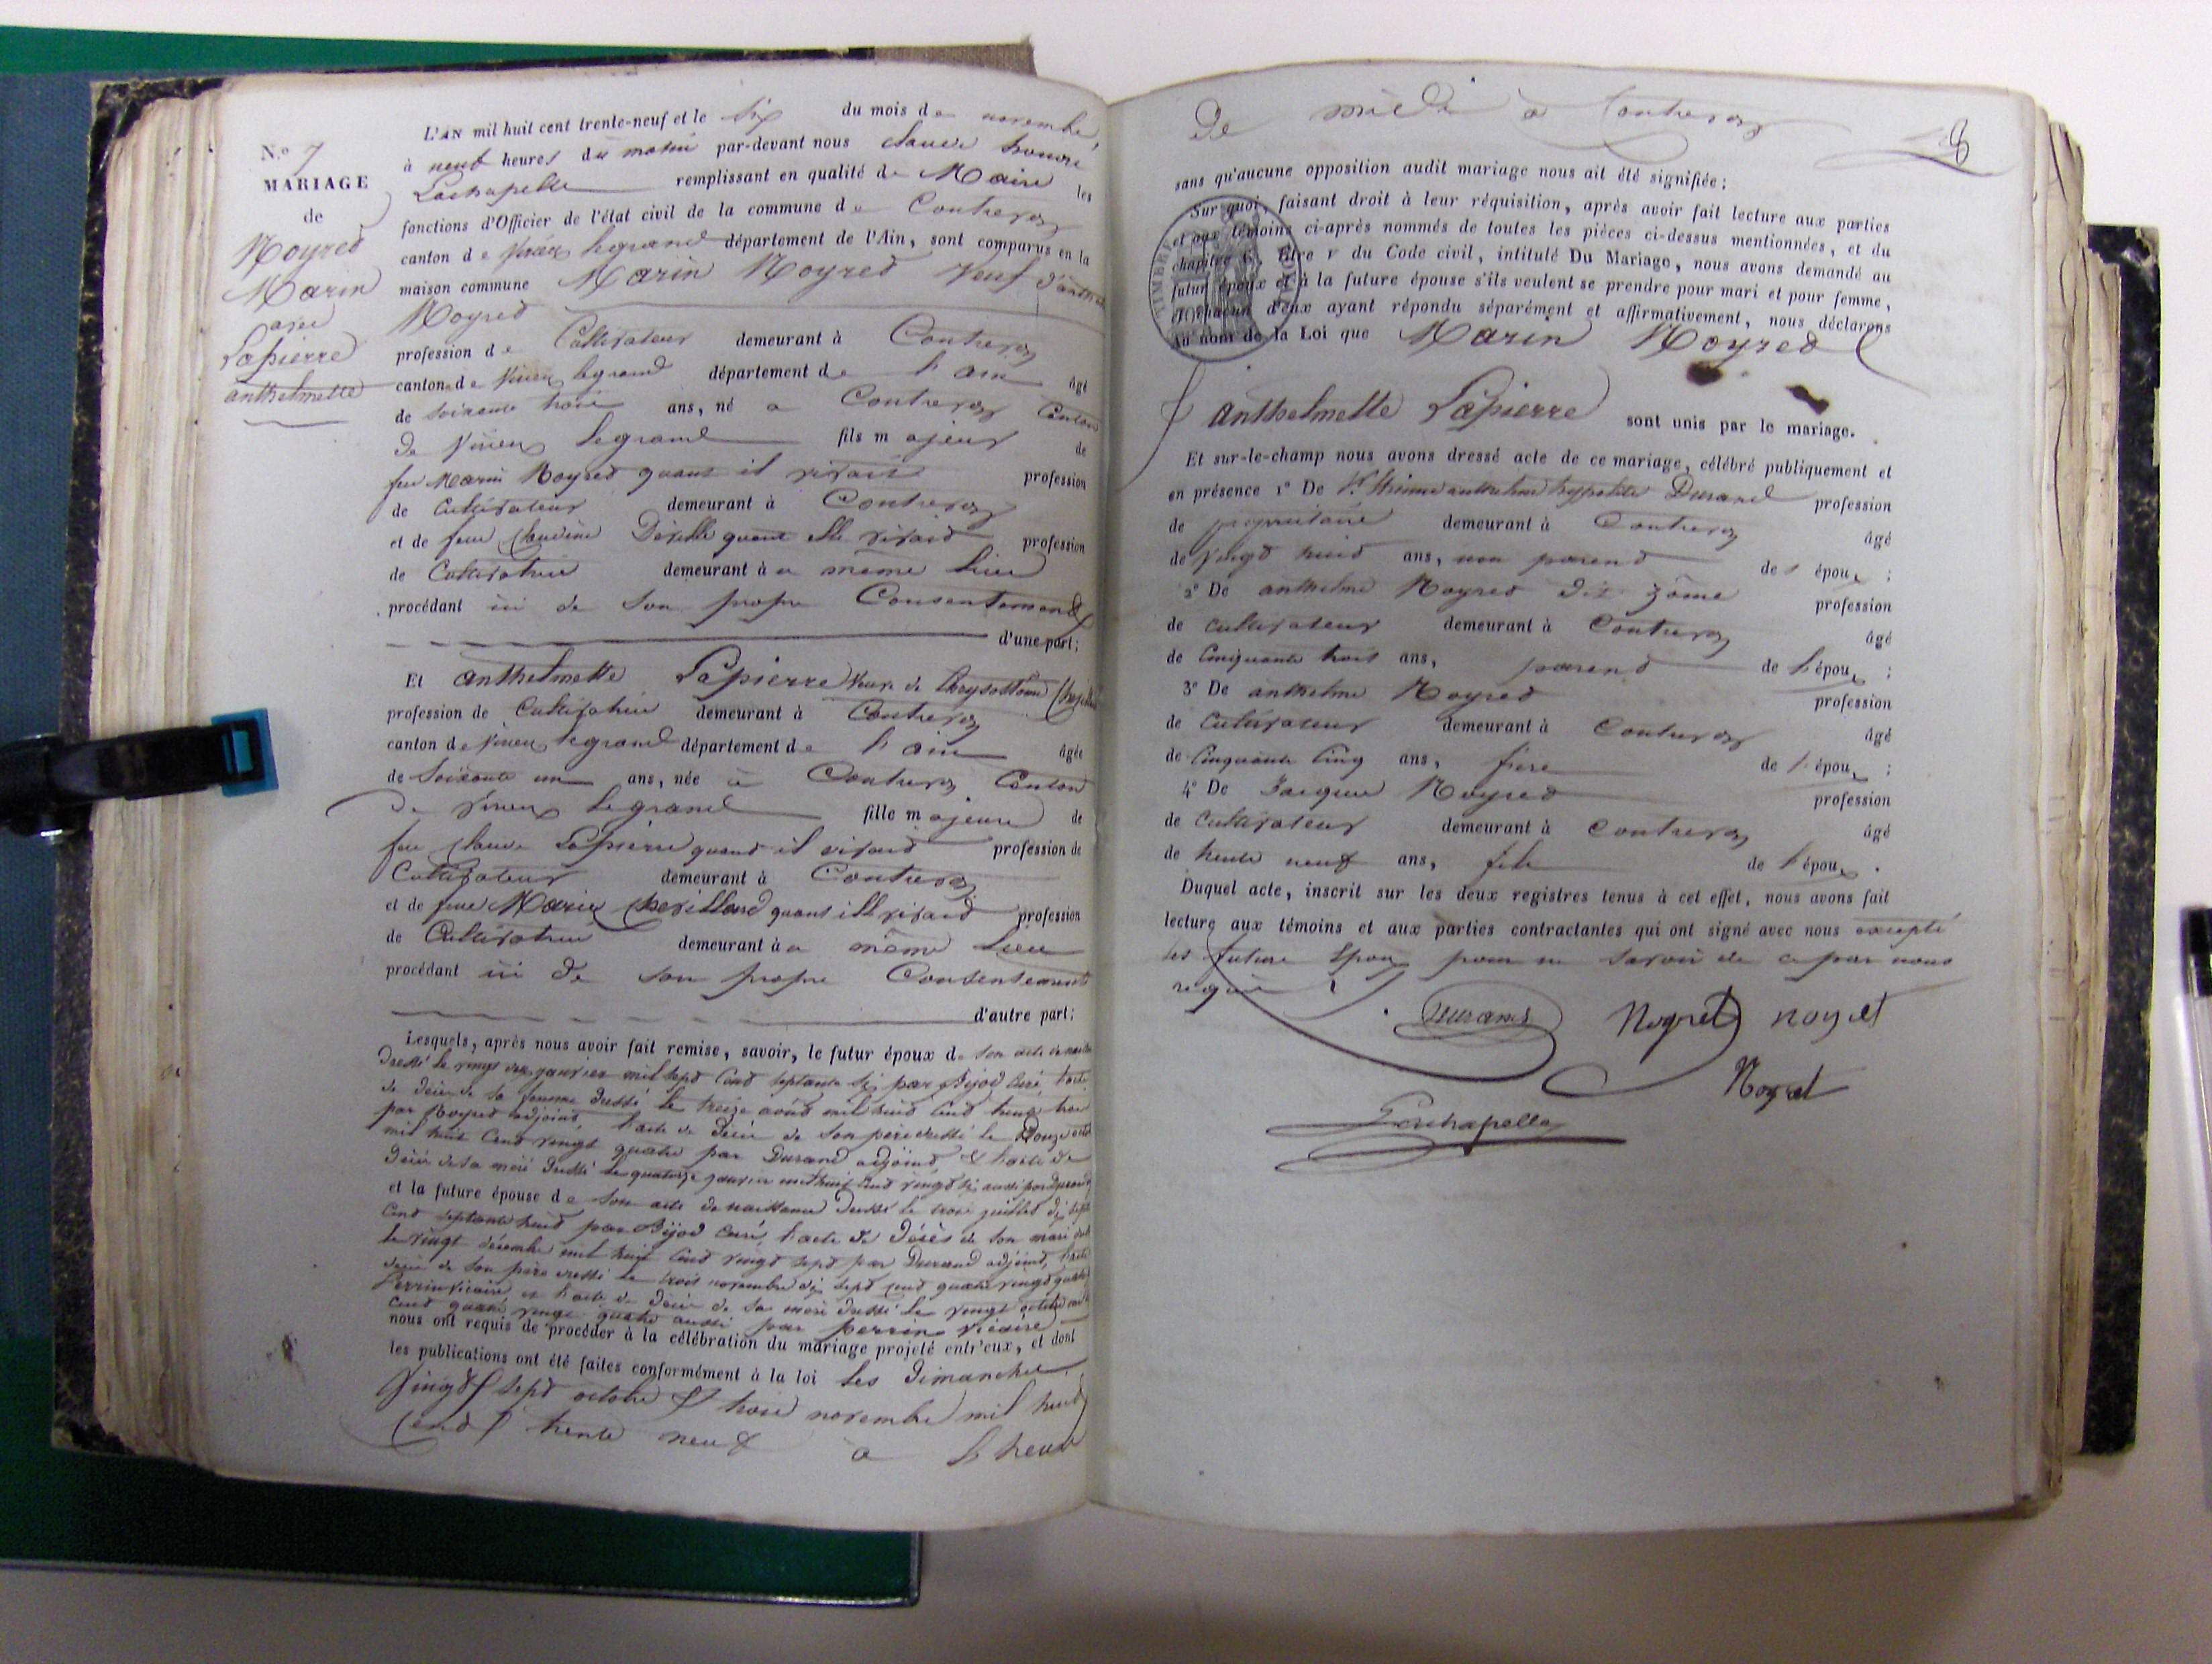 N.º 7
MARIAGE
de
Noyred
Marin
avec
Lapierre
anthelmette
L'AN mil huit cent trente-neuf et le six du mois de novembre
à neuf heures du matin par-devant nous claude honoré
Lachapelle remplissant en qualité de Maire les
fonctions d'Officier de l'état civil de la commune de Contrevoz
canton de Virieu legrand département de l'Ain, sont comparus en la
maison commune Marin Noyred veuf d'anth
Noyred
profession de Cultivateur demeurant à Contrevoz
canton de Virieu legrand département de l'ain âgé
de soixante trois ans, né a Contrevoz Canton
de Virieux legrand fils majeur de
feu Marin Noyred quant il vivait profession
de Cultivateur demeurant à Contrevoz
et de feue Claudine quant elle vivaid profession
de Cultivatrice demeurant à u même lieu
procédant ici de son propre Consentement
d'une part;
Et anthelmette Lapierre veuve de Chrysostome
profession de Cultivatrice demeurant à Contrevoz
canton de Virieu legrand département de l'ain âgée
de soixante un ans, née à Contrevoz Canton
de Virieux legrand fille majeure de
feu claude Lapierre quand il vivaid profession de
Cultivateur demeurant à Contrevoz
et de feue Marie Chevilland quant ill vivaid profession
de Cultivatrice demeurant à u même lieu
procédant ici de son propre Consentement
d'autre part;
Lesquels, après nous avoir fait remise, savoir, le futur époux de son acte de
dressé le vingt janvier mil sept cend septante six par Bijod Curé, l'acte
de décé de sa femme dressé le treize août mil huid cend trente trois
par Noyred adjoind, l'acte de décé de son père dressé le Douze
mil huit Cend vingt quatre par Durand adjoind, & l'acte de
décé de sa mère dressé le quatorze janvier mil huit cend vingt six aussi par Durand
et la future épouse de son acte de naissance dressé le trois juillet dix sept
Cend septante huid par Bijod Curé, l'acte de décès de son mari
le vingt décembre mil huit Cend vingt sept par Durand adjoind, l'acte
décé de son père dressé le trois novembre dix sept cend quatre vingt quatre
Perrin Vicaire et l'acte de décé de sa mère dressé le vingt octobre
Cend quatre vingt quatre aussi par perrin vicaire
nous ont requis de procéder à la célébration du mariage projeté entr'eux, et dont
les publications ont été faites conformément à la loi les Dimanches
Vingt sept octobre & trois novembre mil huid
Cend trente neuf a l'heure
De midi a Contrevoz
sans qu'aucune opposition audit mariage nous ait été signifiée;
Sur quoi, faisant droit à leur réquisition, après avoir fait lecture aux parties
et aux témoins ci-après nommés de toutes les pièces ci-dessus mentionnées, et du
chapitre 6, titre v du Code civil, intitulé Du Mariage, nous avons demandé au
futur époux et à la future épouse s'ils veulent se prendre pour mari et pour femme,
et chacun d'eux ayant répondu séparément et affirmativement, nous déclarons
Au nom de la Loi que Marin Noyred
TIMBRE
& anthelmette Lapierre sont unis par le mariage.
Et sur-le-champ nous avons dressé acte de ce mariage, célébré publiquement et
en présence 1º De anthelme hyppolite Durand profession
de propriétaire demeurant à Contrevoz âgé
de vingt huid ans, non parend de l'époux ;
2º De anthelme Noyred dit profession
de cultivateur demeurant à Contrevoz âgé
de Cinquante trois ans, parend de l'époux ;
3º De anthelme Noyred profession
de Cultivateur demeurant à Contrevoz âgé
de Cinquante Cinq ans, frère de l'époux ;
4º De Jacques Noyred profession
de Cultivateur demeurant à Contrevoz âgé
de trente neuf ans, fils de l'époux .
Duquel acte, inscrit sur les deux registres tenus à cet effet, nous avons fait
lecture aux témoins et aux parties contractantes qui ont signé avec nous excepté
les future Epoux pour ne savoir de ce par nous
requis
Durand Noyret noyet
Noyret
Lachapelle